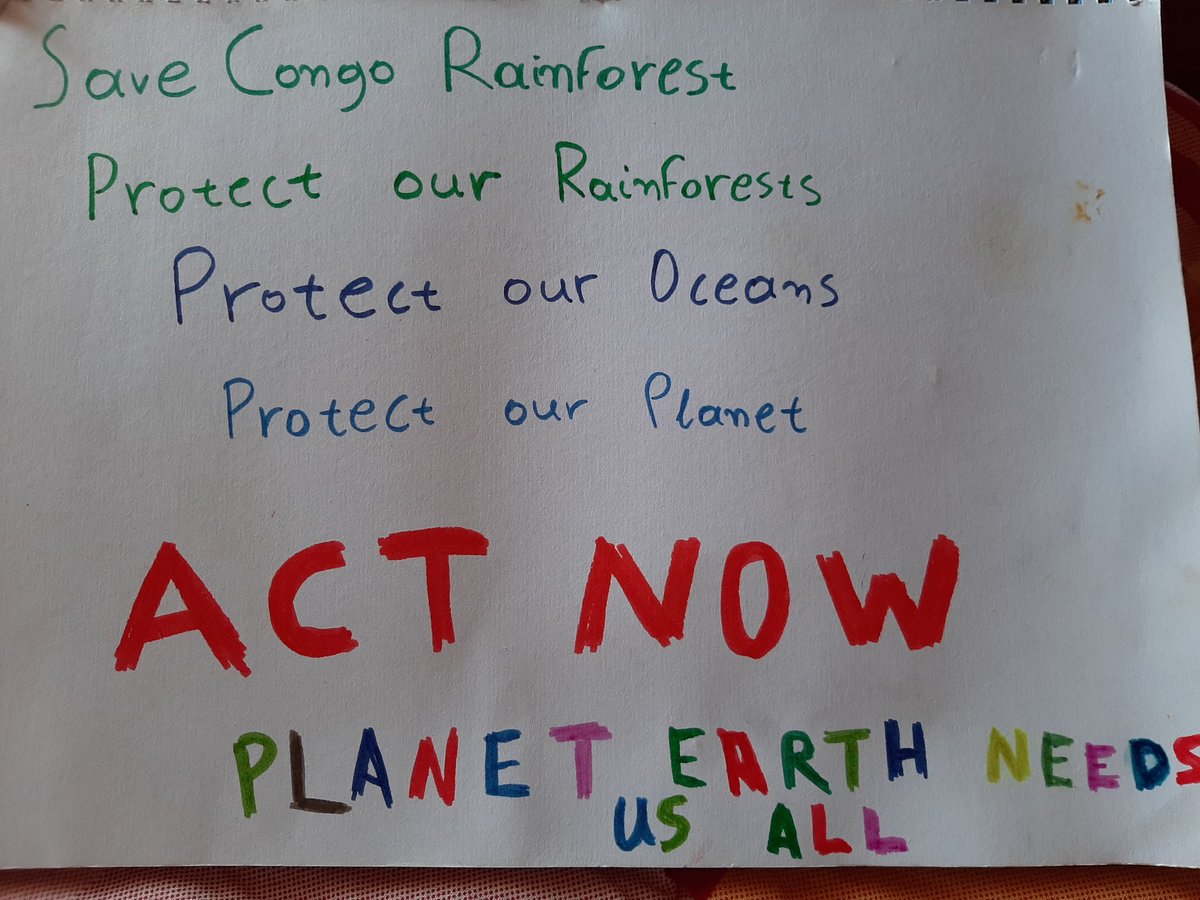 Save Congo Rainforest
Protect our Rainforests
Protect our Oceans
Protect our Planet
ACT NOW
PLANET EARTH NEEDS
US ALL